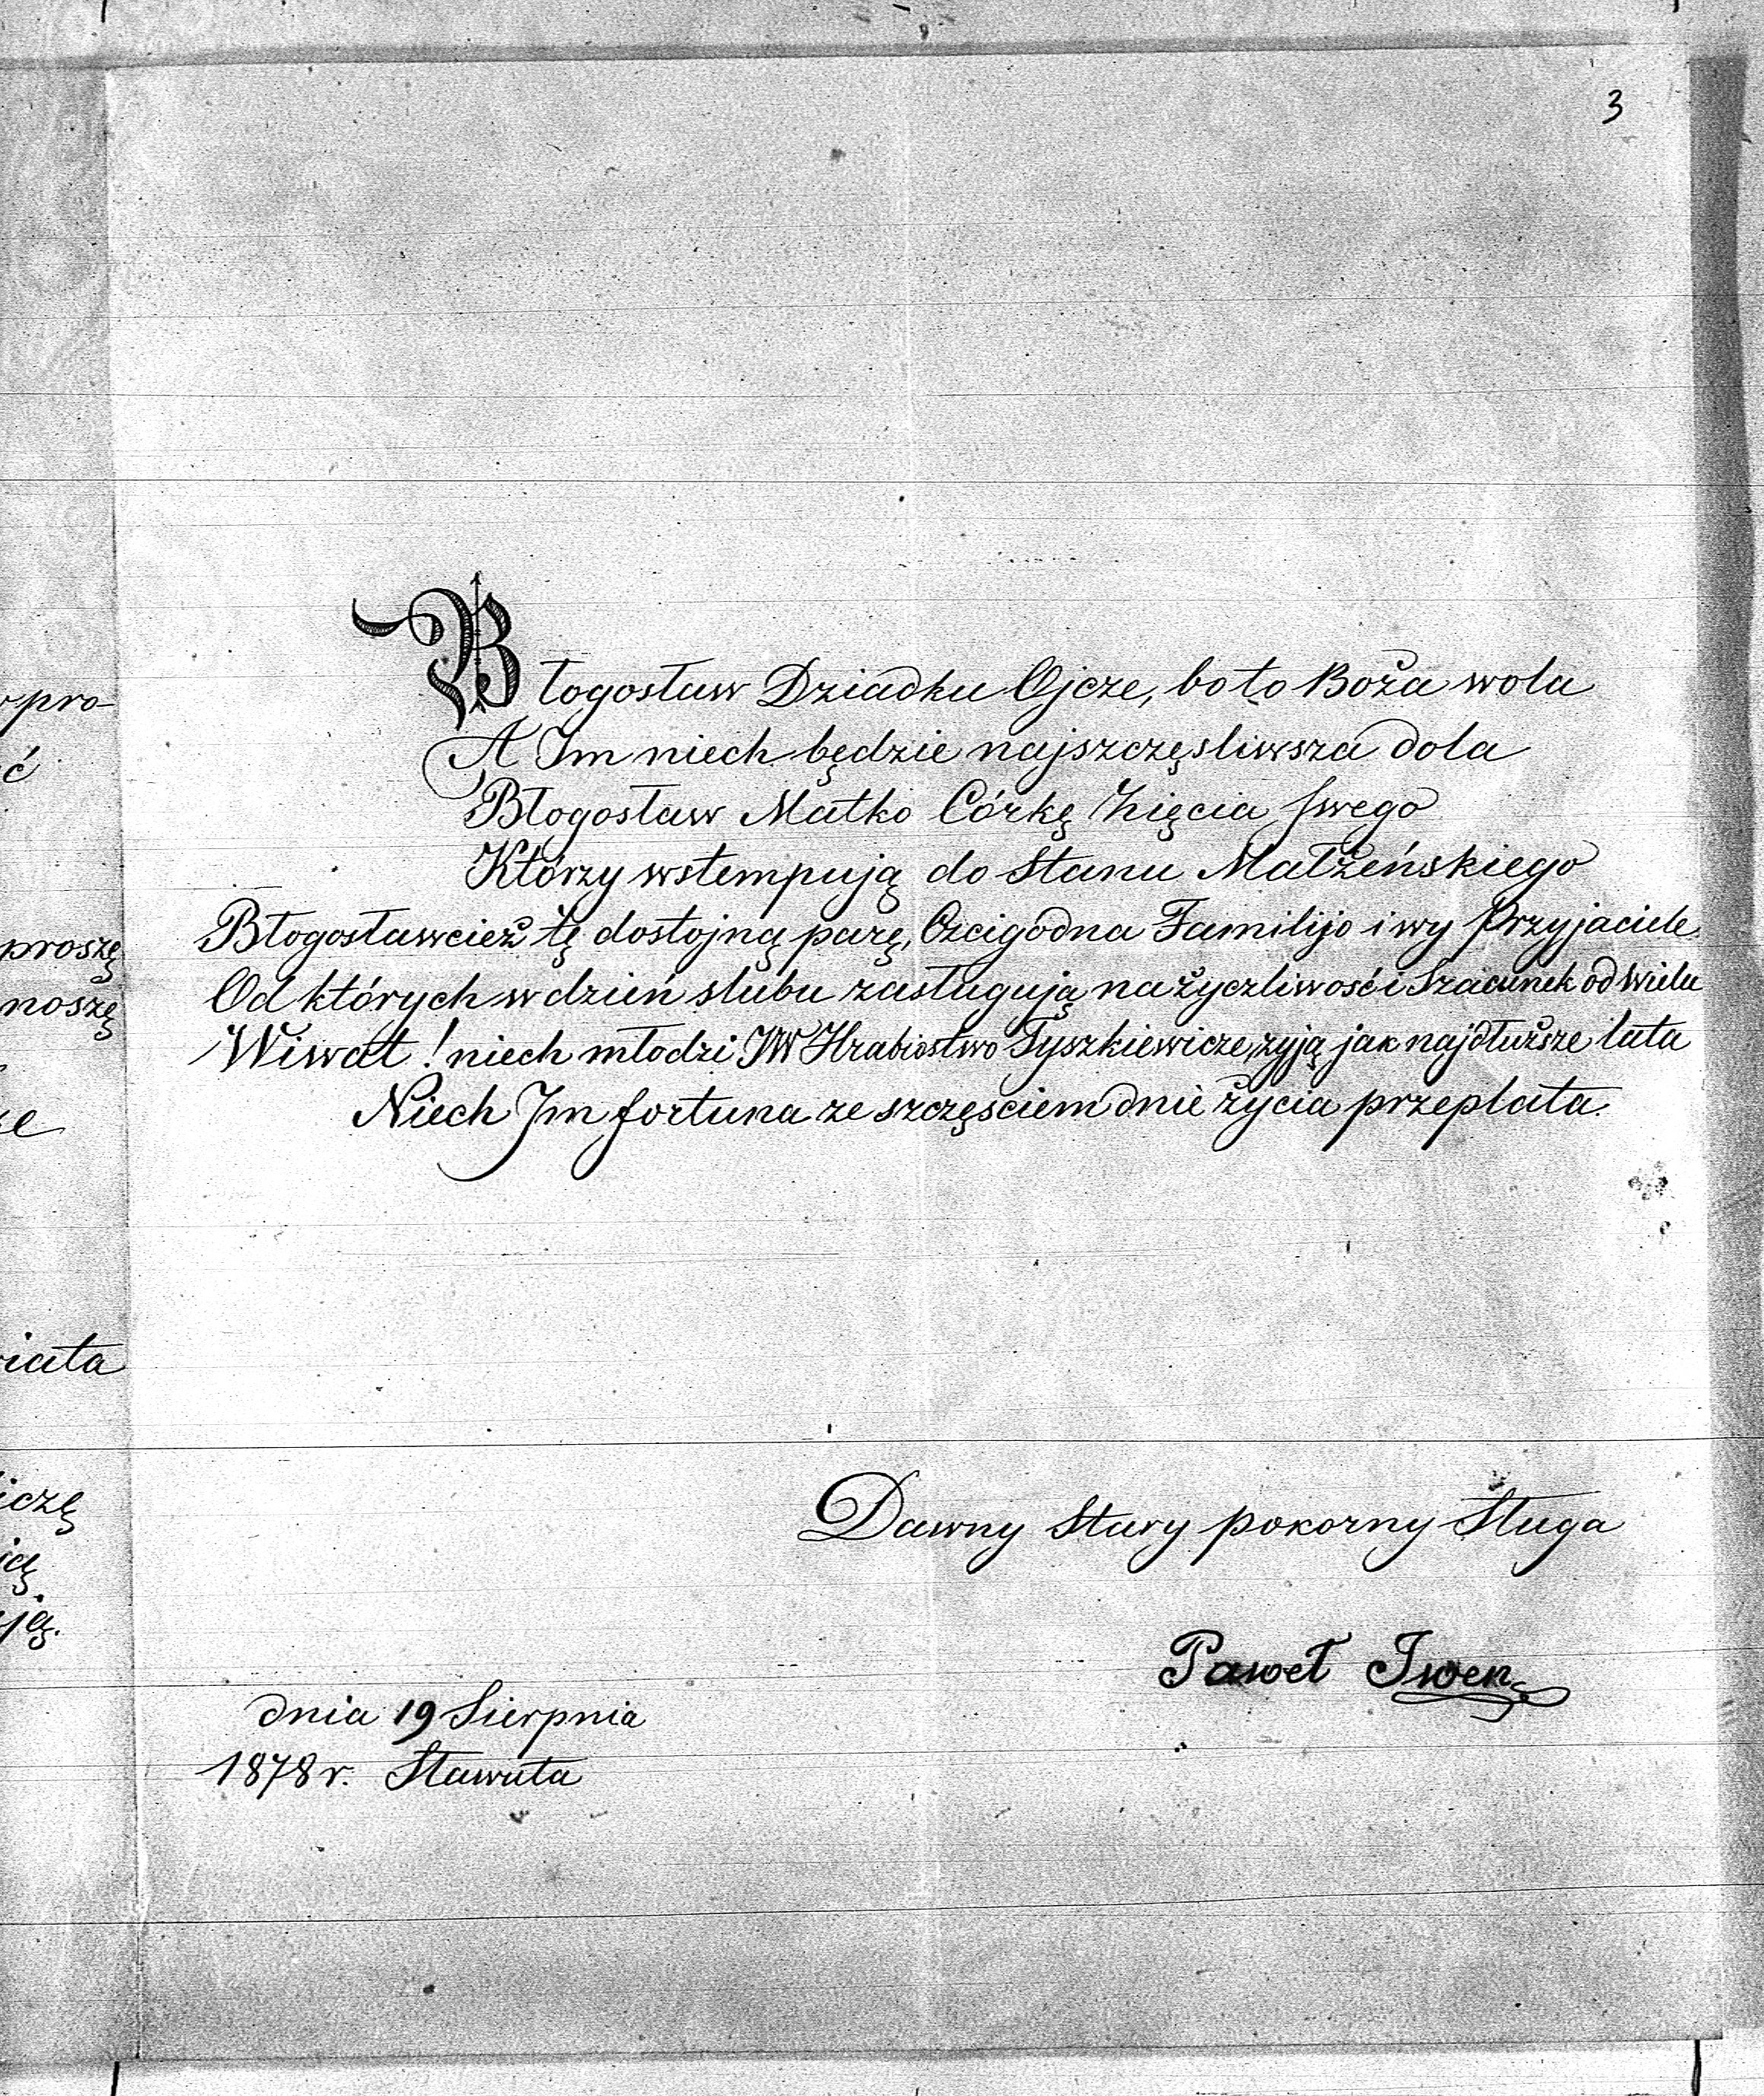 3
Błogosław Dziadku Ojcze, bo to Boża wola
A Im niech będzie najszczęsliwsza dola
Błogosław Matko Córkę Zięcia swego
Którzy wstempują do Stanu Małżeńskiego
Błogosławcież tę dostojną parę, Czcigodna Familijo i wy Przyjaciele
Od których w dzień slubu zasługują na życzliwość i Szacunek od wielu
Wiwat! niech młodzi JW Hrabiostwo Tyszkiewicze, żyją jak najdłuższe lata
Niech Im fortuna ze szczęsciem dnie życia przeplata.
Dawny Stary pokorny Sługa
Paweł Iwen
dnia 19 Sierpnia
1878 r. Sławuta
pro-
ć
proszę
noszę
iata
iczę